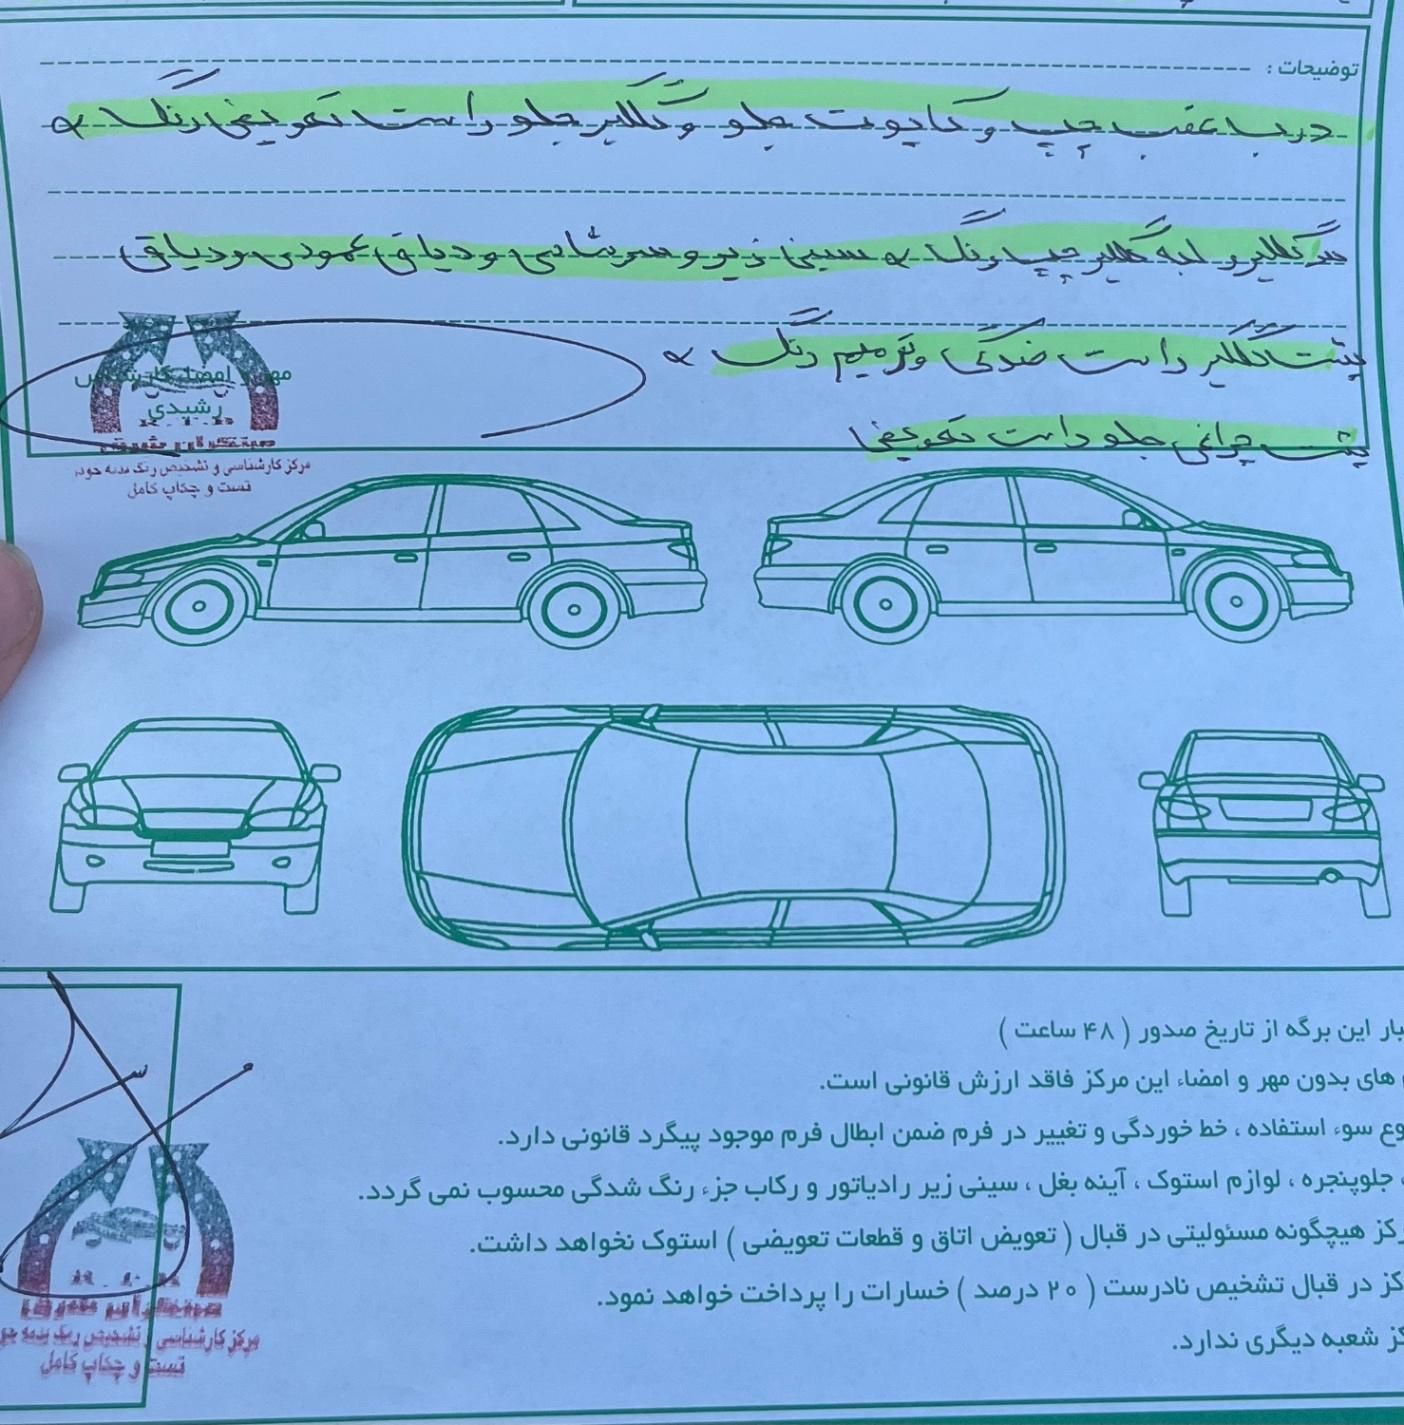 توضیحات :
درب عقب چپ و کاپوت جلو و گلگیر جلو راست تعویض رنگ
گلگیر و لبه گلگیر چپ رنگ سینی زیر و سرشاسی و دیاق عمودی و دیاق
پشت گلگیر راست ضدگی و ترمیم رنگ
پشت چراغی جلو راست تعویض
مهر و امضاء کارشناس
رشیدی
مرکز کارشناسی و تشخیص رنگ بدنه خودر
تست و چکاپ کامل
بار این برگه از تاریخ صدور ( ۴۸ ساعت )
های بدون مهر و امضاء این مرکز فاقد ارزش قانونی است.
وع سوء استفاده ، خط خوردگی و تغییر در فرم ضمن ابطال فرم موجود پیگرد قانونی دارد.
، جلوپنجره ، لوازم استوک ، آینه بغل ، سینی زیر رادیاتور و رکاب جزء رنگ شدگی محسوب نمی گردد.
رکز هیچگونه مسئولیتی در قبال ( تعویض اتاق و قطعات تعویضی ) استوک نخواهد داشت.
کز در قبال تشخیص نادرست ( ۲۰ درصد ) خسارات را پرداخت خواهد نمود.
کز شعبه دیگری ندارد.
مرکز کارشناسی و تشخیص رنگ بدنه خو
تست و چکاپ کامل